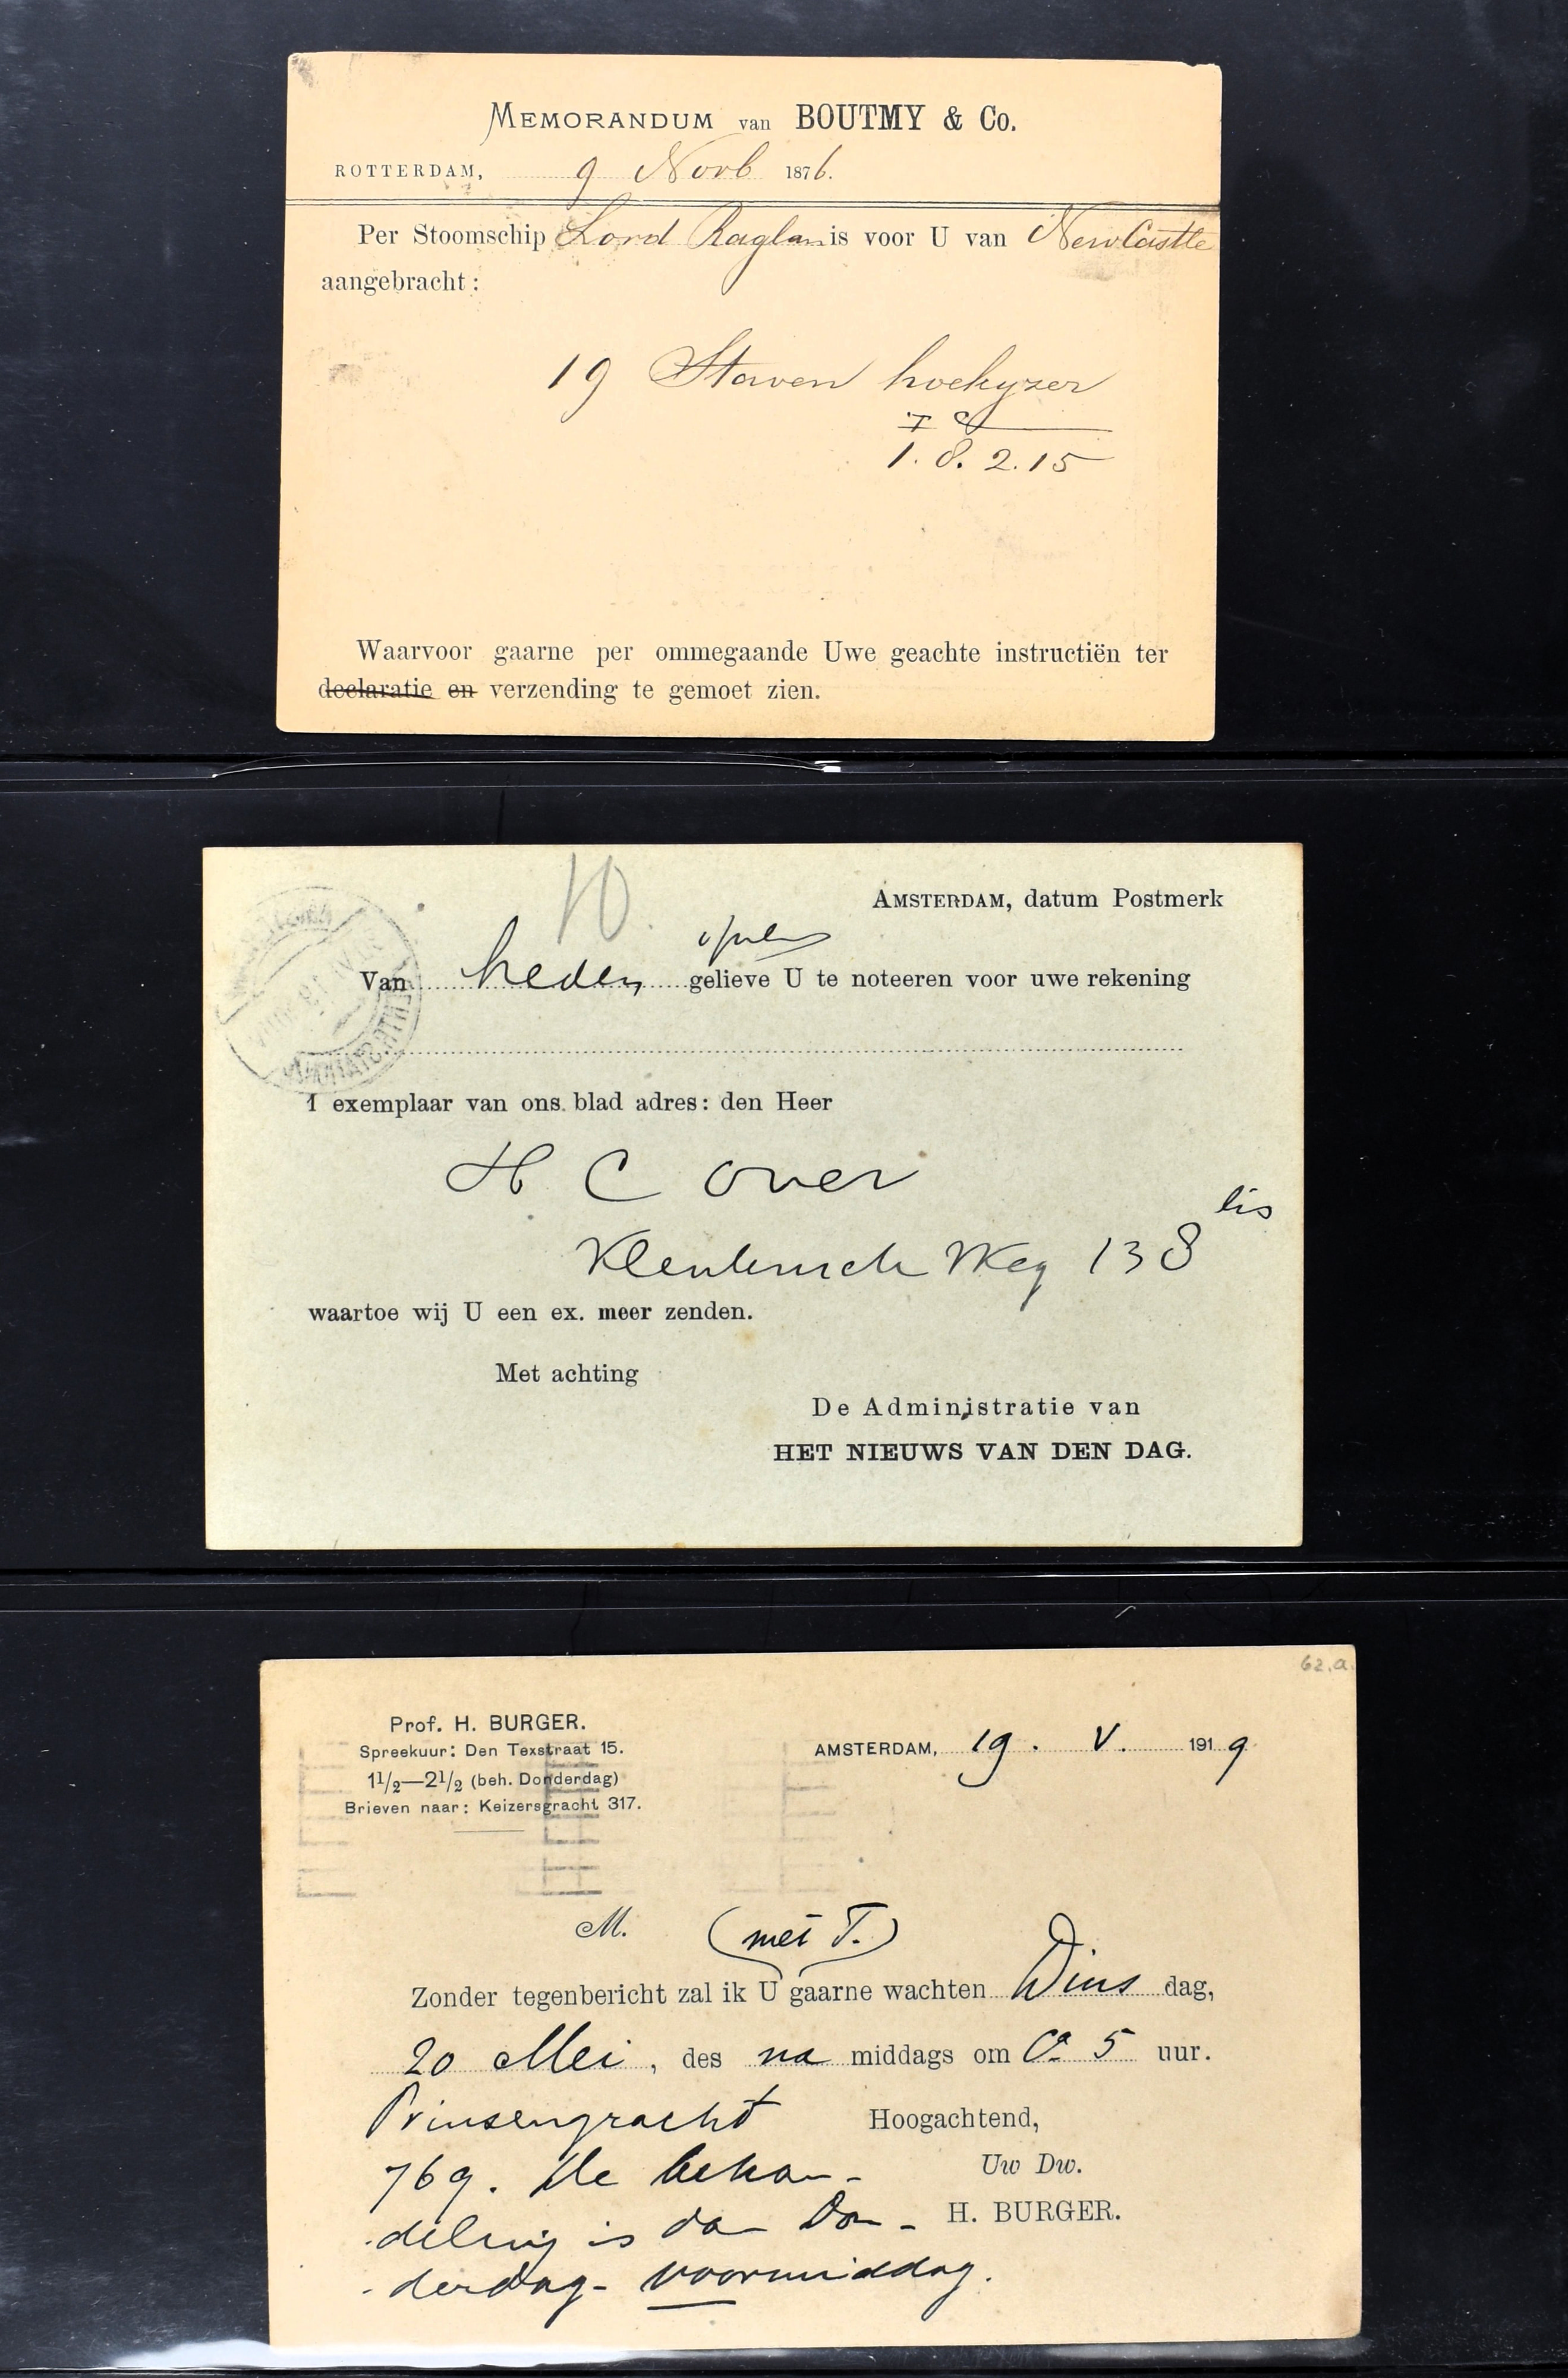 MEMORANDUM van BOUTMY & Co.
ROTTERDAM, 9 Novb 1876.
Per Stoomschip Lord Raglan is voor U van NewCastle
aangebracht:
19 Staven hoekyzer
1.8.2.15
Waarvoor gaarne per ommegaande Uwe geachte instructiën ter
declaratie en verzending te gemoet zien.
10
AMSTERDAM, datum Postmerk
Van heden gelieve U te noteeren voor uwe rekening
1 exemplaar van ons blad adres: den Heer
H C Over
Weg 138
waartoe wij U een ex. meer zenden.
Met achting
De Administratie van
HET NIEUWS VAN DEN DAG.
62.a.
Prof. H. BURGER.
Spreekuur: Den Texstraat 15.
1 1/2—2 1/2 (beh. Donderdag)
Brieven naar: Keizersgracht 317.
AMSTERDAM, 19. V. 1919
M. (met T.)
Zonder tegenbericht zal ik U gaarne wachten Dinsdag,
20 Mei, des na middags om Ca 5 uur.
Prinsengracht
Hoogachtend,
769. De behan-
Uw Dw.
deling is dan Don-
H. BURGER.
derdag- voormiddag.